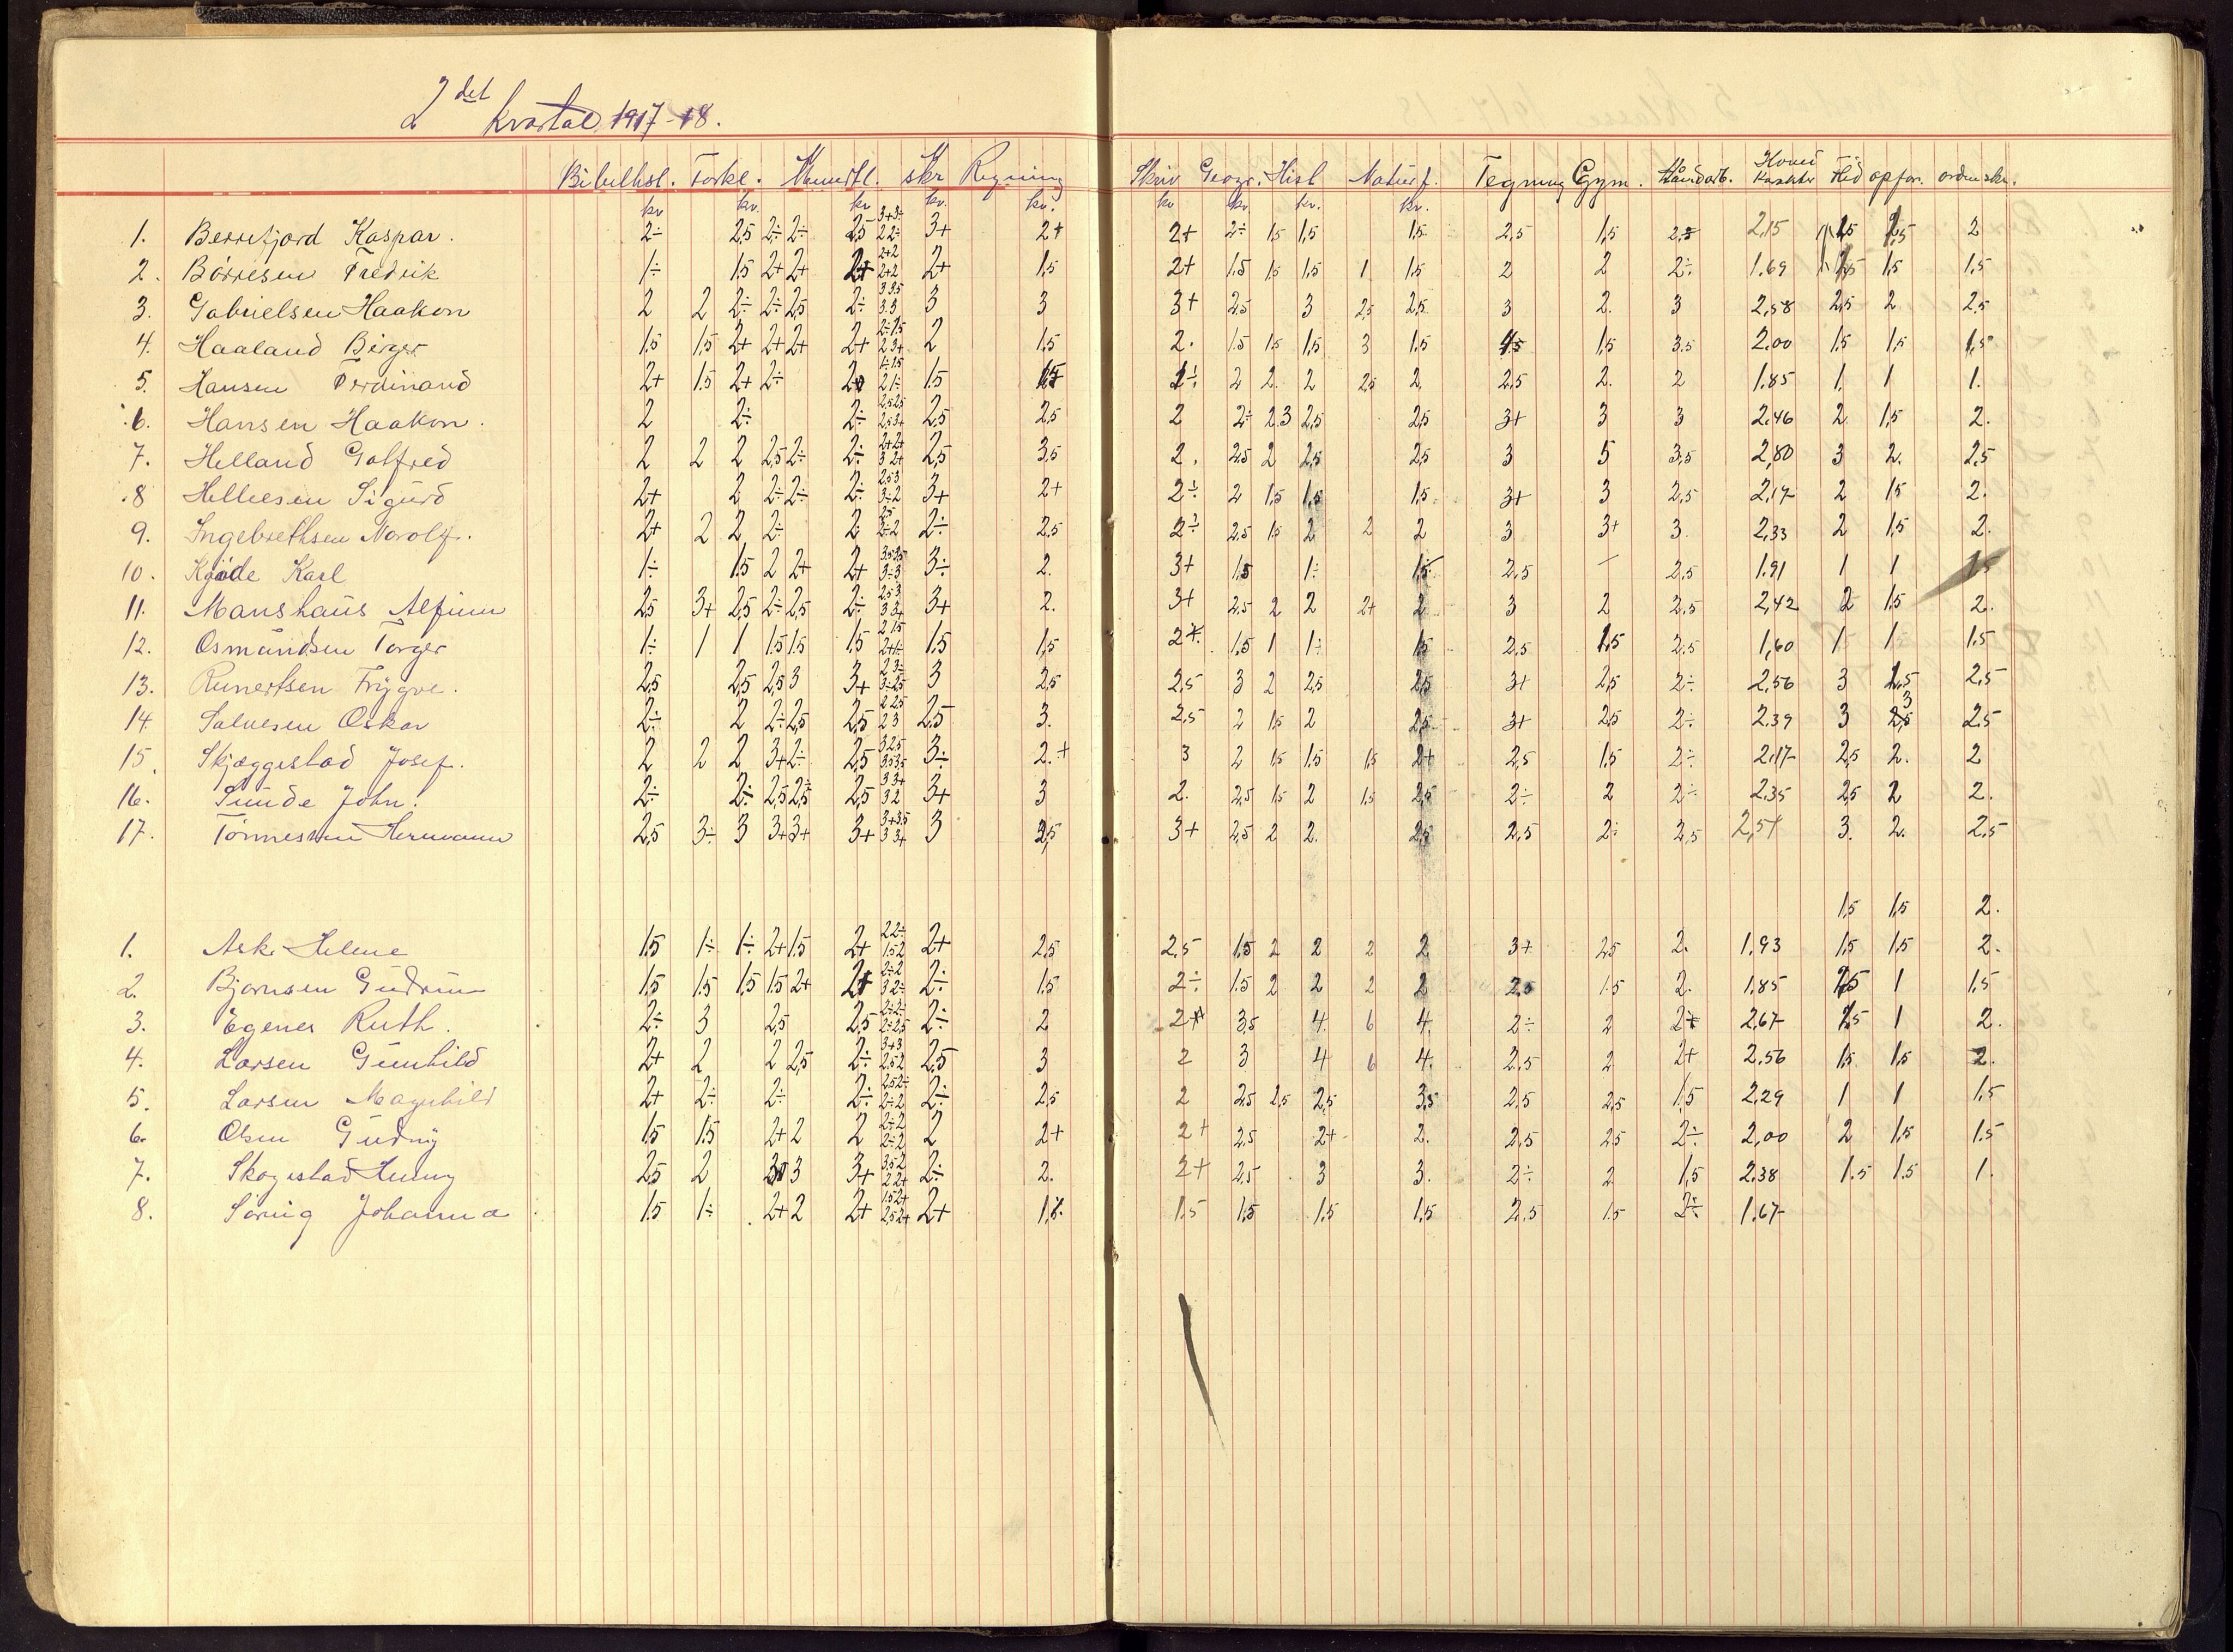 2det Kvartal 1917-18.
Bibelhst. Forkl. Mundtl. skr Regning Skriv Geogr. Hist Naturf. Tegning Gym. Håndarb. Hoved Karakter Flid opfør. ordenskr.
kv kv. kv kv. kv. kv kv. kv. kv.
1. Berrefjord Kaspar. 2÷ 2,5 2÷ 2÷ 2,5 3+ 3÷ 2 2÷ 3+ 2+ 2+ 2÷ 1,5 1,5 1,5 2,5 1,5 2,5 2,15 1,5 1,5 2
2. Børresen Fredrik 1÷ 1,5 2+ 2+ 2+ 2+2 2+2 2+ 1,5 2+ 1.5 1.5 1.5 1 1.5 2 2 2÷ 1.69 1,5 1.5 1.5
3. Gabrielsen Haakon 2 2 2÷ 2÷ 2,5 2÷ 3 3.5 3.3 3 3 3+ 2.5 3 2.5 2.5 3 2. 3 2,58 2,5 2 2.5
4. Haaland Birger 1.5 1,5 2+ 2+ 2+ 2+ 2÷ 1.5 2 3+ 2 1.5 2. 1.5 1.5 1,5 3 1.5 1,5 3.5 2.00 1.5 1.5 1,5
5. Hansen Ferdinand 2+ 1.5 2+ 2÷ 1÷ 1.5 2 1÷ 1.5 1.5 2÷ 2 2. 2 2.5 2. 2.5 2. 2 1.85 1. 1 1.
6. Hansen Haakon. 2 2÷ 2÷ 2,5 2,5 2,5 3+ 2,5 2,5 2 2÷ 2.3 2,5 2,5 3+ 3 3 2.46 2. 1.5 2.
7. Helland Golfred 2 2 2 2,5 2÷ 2÷ 2+ 2+ 3 2+ 2,5 3.5 2. 2.5 2 2.5 2.5 3 5 3,5 2,80 3 2. 2.5
8 Hellesen Sigurd 2+ 2 2÷ 2÷ 2÷ 2,5 3 3÷ 2 3+ 2+ 2÷ 2 1.5 1.5 1.5 3+ 3 2,5 2,17 2 1.5 2.
9. Ingebrethsen Norolf. 2+ 2 2 2÷ 2 2,5 2÷ 2 2÷ 2.5 2÷ 2.5 1.5 2 2 2 3 3+ 3. 2,33 2 1.5 2.
10. Kjøde Karl 1÷ 1.5 2 2+ 2+ 3.5 2.5 3÷ 3 3÷ 2. 3+ 1.5 1÷ 1.5 2,5 — 2.5 1.91 1 1 1.5
11. Manshaus Alfinn 2,5 3+ 2,5 2÷ 2,5 2÷ 2.5 3 3 3+ 3+ 2. 3+ 2.5 2 2 2+ 2 3 2 2.5 2,42 2 1.5 2.
12. Osmundsen Torger 1÷ 1 1 1.5 1.5 1.5 2 1.5 2+ 1÷ 1.5 1,5 1.5 1 1÷ 1.5 2.5 1.5 2.5 1,60 1 1 1.5
13. Runertsen Trygve. 2,5 2,5 2,5 3 3+ 2 3÷ 3÷ 2.5 3 2,5 2,5 3 2 2,5 2,5 3+ 2,5 2÷ 2,56 3 1,5 2,5
14. Salvesen Oskar 2÷ 2 2÷ 2,5 2,5 2 2.5 2 3 2,5 3. 2,5 2 1.5 2 2,5 3+ 2,5 2÷ 2.39 3 3 2.5
15. Skjæggestad Josef. 2 2 2 3+ 2÷ 2,5 3 2.5 3.5 3.5 3÷ 2.+ 3 2 1.5 1.5 1.5 2+ 2,5 1.5 2÷ 2,17 2,5 2. 2
16. Sunde John. 2÷ 2÷ 2,5 2,5 2,5 3 3+ 3 2 3+ 3 2. 2.5 1.5 2 1.5 2.5 2÷ 2 2÷ 2,35 2.5 2 2.
17. Tønnessen Hermann 2,5 3÷ 3 3+ 3+ 3+ 3+ 3.5 3 3+ 3 3,5 3+ 2,5 2 2. 2.5 2,5 2÷ 2,5 3. 2. 2.5
1,5 1,5 2.
1. Ask Helene 1.5 1÷ 1÷ 2+ 1.5 2+ 2 2÷ 1.5 2 2+ 2,5 2,5 1.5 2 2 2 2 3+ 2.5 2. 1.93 1.5 1.5 2.
2. Bjørnsen Gudrun 1.5 1.5 1.5 1.5 2+ 2+ 2÷ 2 3 2÷ 2÷ 1.5 2÷ 1.5 2 2 2 2 2,5 1.5 2. 1.85 1.5 1 1.5
3. Egenes Ruth. 2÷ 3 2,5 2,5 2÷ 2÷ 2÷ 2.5 2÷ 2 2+ 3.5 4. 6 4. 2÷ 2 2+ 2.67 1.5 1 2.
4. Larsen Gunhild 2+ 2 2 2,5 2÷ 3+ 3 2.5 2 2,5 3 2 3 4 6 4. 2.5 2 2+ 2.56 1.5 1,5 2.
5. Larsen Magnhild 2+ 2÷ 2÷ 2÷ 2.5 2÷ 2÷ 2 2÷ 2.5 2 2.5 2.5 2,5 3,5 2,5 2,5 1.5 2.29 1 1 1.5
6. Olsen Gudny 1.5 1.5 2+ 2 2 2÷ 2 2÷ 2 2 2+ 2+ 2.5 2+ 2. 2.5 2.5 2÷ 2,00 2 1.5 1.5
7. Skogestad Henny 2.5 2 3 3+ 3.5 2 2 2+ 2÷ 2. 2+ 2,5 3 3. 2÷ 2 1,5 2.38 1.5 1.5 1.
8. Søring Johanna 1.5 1÷ 2+ 2 2+ 1.5 2+ 2,5 2+ 2+ 1.5 1.5 1.5 1.5 2.5 1.5 2÷ 1.67